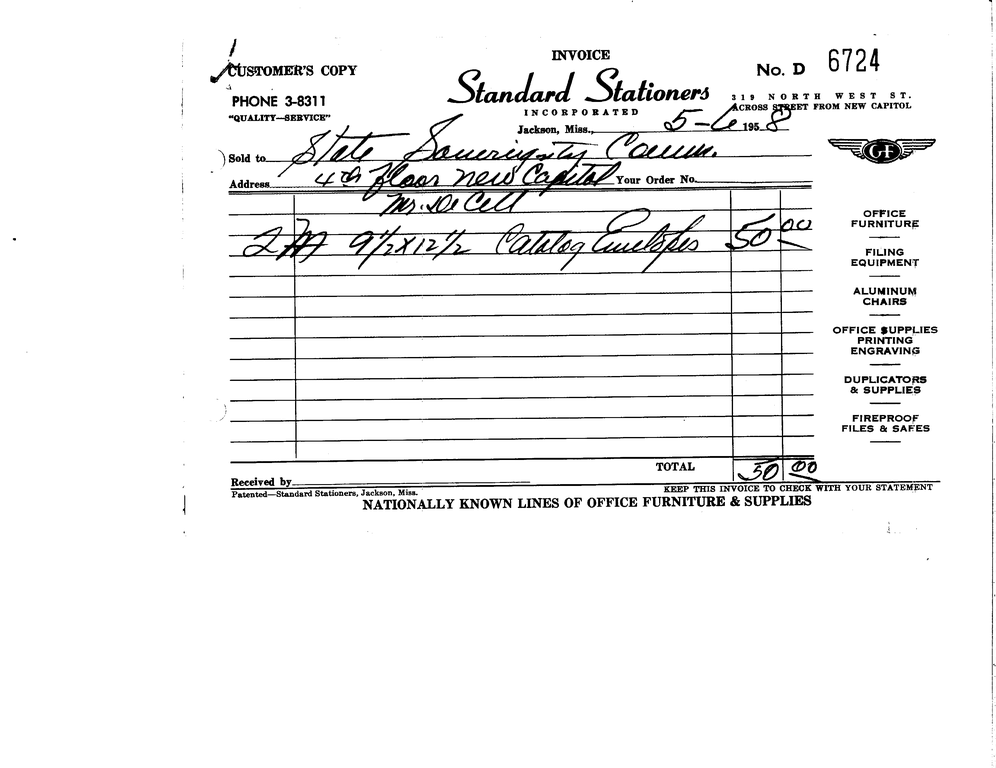 INVOICE
CUSTOMER'S COPY
No. D 6724
Standard Stationers
INCORPORATED
PHONE 3-8311
"QUALITY—SERVICE"
319 NORTH WEST ST.
ACROSS STREET FROM NEW CAPITOL
Jackson, Miss., 5-6 1958
Sold to State Soverignity Comm.
Address 4th floor new Capitol Your Order No.
Mr. De Cell
2 M 9 1/2 X 12 1/2 Catalog Envelopes 50 00
GF
OFFICE
FURNITURE
FILING
EQUIPMENT
ALUMINUM
CHAIRS
OFFICE SUPPLIES
PRINTING
ENGRAVING
DUPLICATORS
& SUPPLIES
FIREPROOF
FILES & SAFES
TOTAL 50 00
Received by
Patented—Standard Stationers, Jackson, Miss.
KEEP THIS INVOICE TO CHECK WITH YOUR STATEMENT
NATIONALLY KNOWN LINES OF OFFICE FURNITURE & SUPPLIES